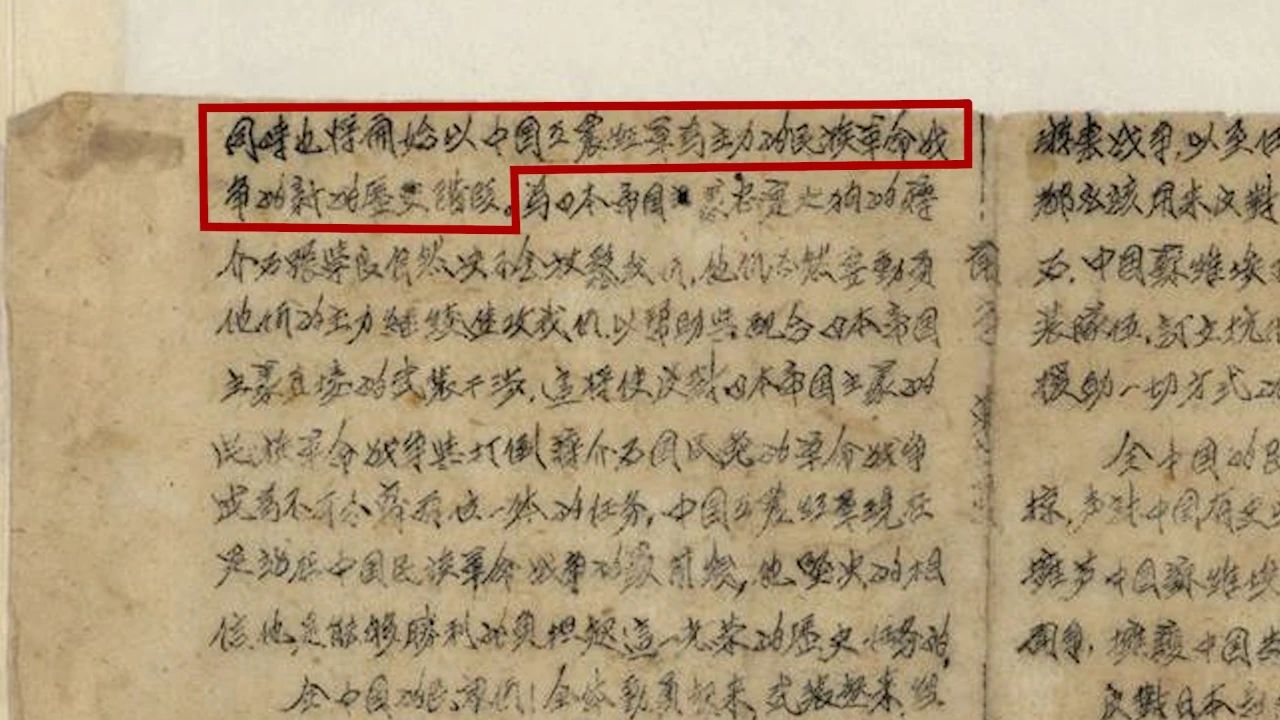 同時也将開始以中国工農红軍為主力的民族革命战
争的新的歷史階段。為日本帝国 義忠實走狗的蔣
介石張学良仍然决不会放鬆我们,他们必然要動員
他们的主力継续進攻我们,以帮助与配合日本帝国
主義直接的武装干涉,這将使反対日本帝国主義的
民族革命战争与打倒蔣介石国民党的革命战争
成為不可分 的任务,中国工農红軍現在
是站在中国民族革命战争的最前线,他堅决的相
信他是能够勝利的負担起這一光荣的歷史任务的,
全中国的民衆们!全体動員起来,武装起来,组
战争,以至任
都应该用来反對
力,中国蘇維埃
装隊伍,訂立抗
援助一切方式的
全中国的民
掠,声討中国
中国蘇維埃
鬥争,擁護中国
反對日本